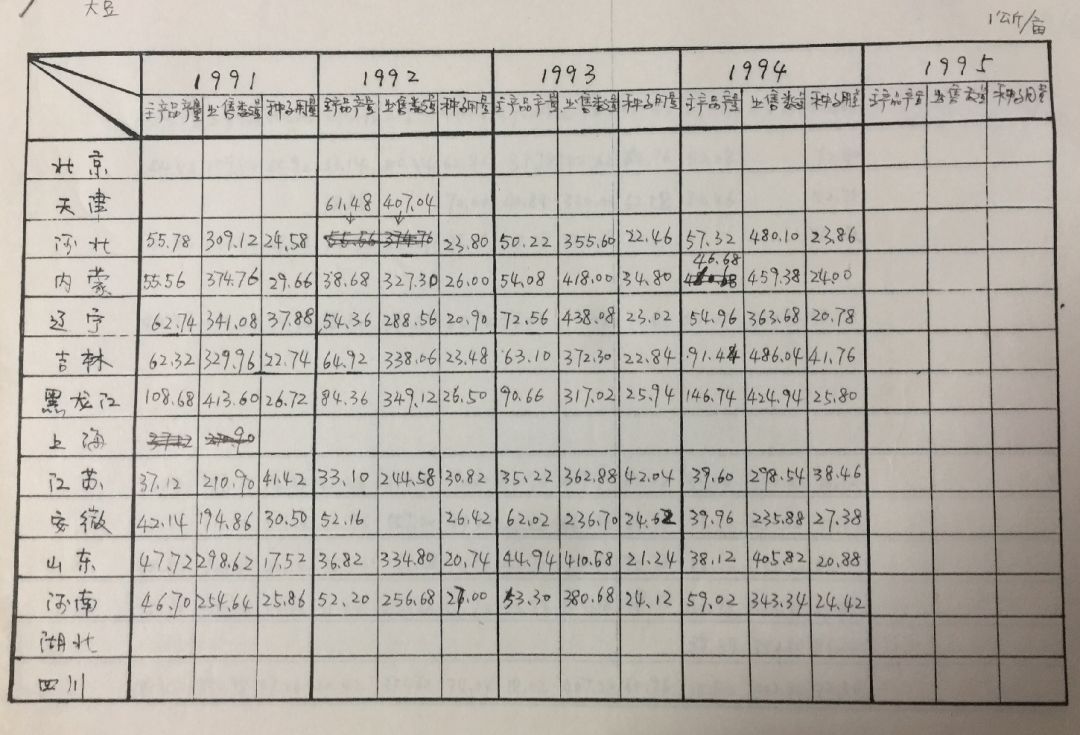 大豆
1公斤/亩
1991 1992 1993 1994 1995
主产品产量 出售数量 种子用量 主产品产量 出售数量 种子用量 主产品产量 出售数量 种子用量 主产品产量 出售数量 种子用量 主产品产量 出售数量 种子用量
北京
天津 61.48 407.04
河北 55.78 309.12 24.58 55.56 374.76 23.80 50.22 355.60 22.46 57.32 480.10 23.86
46.68
内蒙 55.56 374.76 29.66 38.68 327.30 26.00 54.08 418.00 34.80 459.38 24.00
辽宁 62.74 341.08 37.88 54.36 288.56 20.90 72.56 438.08 23.02 54.96 363.68 20.78
吉林 62.32 329.96 22.74 64.92 338.06 23.48 63.10 372.30 22.84 91.44 486.04 41.76
黑龙江 108.68 413.60 26.72 84.36 349.12 26.50 90.66 317.02 25.94 146.74 424.94 25.80
上海
江苏 37.12 210.90 41.42 33.10 244.58 30.82 35.22 362.88 42.04 39.60 298.54 38.46
安徽 42.14 194.86 30.50 52.16 26.42 62.02 236.70 24.62 39.96 235.88 27.38
山东 47.72 298.62 17.52 36.82 334.80 20.74 44.94 410.68 21.24 38.12 405.82 20.88
河南 46.70 254.64 25.86 52.20 256.68 53.30 380.68 24.12 59.02 343.34 24.42
湖北
四川